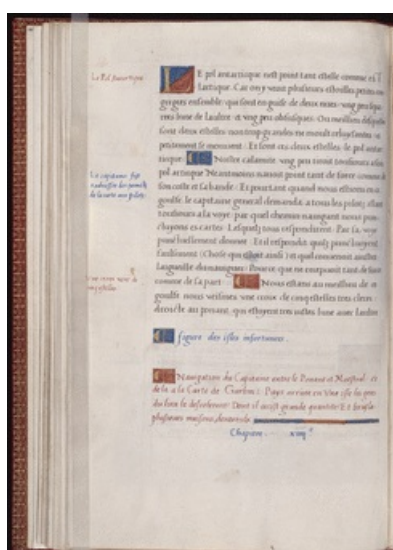 Le Pol Antartique
LE pol antarctique nest point tant estelle comme est l
lartique. Car on y veoit plusieurs estoilles petites con
gregues ensemble, qui sont en guise de deux nues vng peu sepa
rees lune de laultre, et vng peu obfusques. Ou meillieu desquelles
sont deux estoilles non trop grandes ne moult reluysantes et
petitement se mouuent. Et sont ces deux estoilles le pol antar
tique. Nostre calamite vng peu tiroit tousiours a son
pol artique Neantmoins nauoit point tant de force comme de
son coste et sa bande. Et pourtant quand nous estions en ce
gouffre, le capitaine general demanda a tous les pilotz allant
tousiours a la voye, par quel chemin nauigant nous poin
ctuyons es cartes. Lesquelz tous respondirent. Par sa voye
punctuellement donnee. Et il respondit, quilz poinctuoyent
faulsement (Chose qui estoit ainsi) et quil conuenoit aiuster
Languille du nauigant, Pource que ne receuoit tant de force
comme de sa part. Nous estans au meillieu de ce
gouffre nous veismes vne croix de cinq estoilles tres cleres
droicte au ponant, qui estoyent tres iustes lune auec laultre
Le capitaine fut
des pointz
de la carte aux pilotz
Vne croix
cinq estoilles
figure des isles infortunees.
Nauigation du Capitaine entre le Ponant et Maestral et
de la a la Carte de Puys arriuent en vne isle les gens
Dont il occist grande quantite Et brusla
plusieurs maisons
Chapitre. xiiij